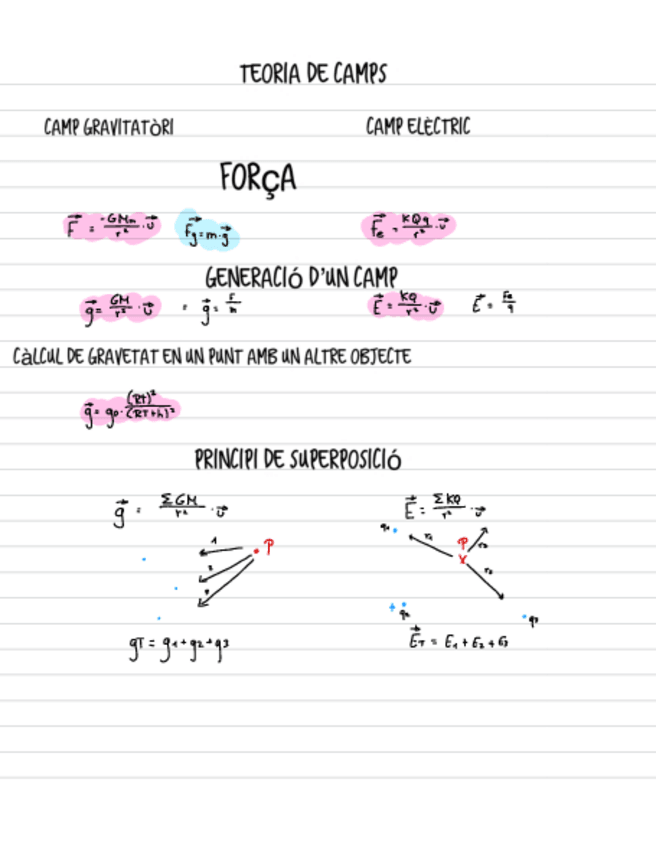 TEORIA DE CAMPS
CAMP GRAVITATÒRI CAMP ELÈCTRIC
FORÇA
F⃗ = -GMm/r² · u⃗ F⃗g = m·g⃗ F⃗e = KQq/r² · u⃗
GENERACIÓ D'UN CAMP
g⃗ = GM/r² · u⃗ = g⃗ = F/m E⃗ = KQ/r² · u⃗ E⃗ = Fe/q
CÀLCUL DE GRAVETAT EN UN PUNT AMB UN ALTRE OBJECTE
g⃗ = g0 · (Rt)²/(RT+h)²
PRINCIPI DE SUPERPOSICIÓ
g⃗ = ΣGM/r² · u⃗ E⃗ = ΣKQ/r² · u⃗
q1 r1 P r2
1 P
2 r3
3
q2 q3
gT = g1+g2+g3 E⃗T = E1 + E2 + E3